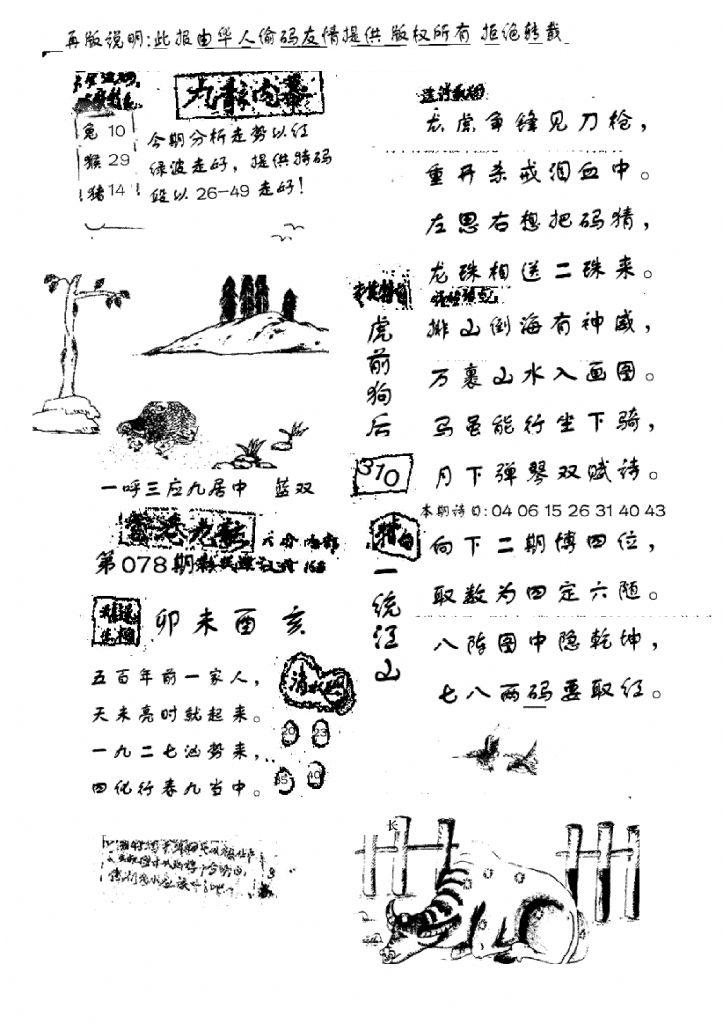 再版说明:此报由华人偷码友情提供 版权所有 拒绝转载
九龍内幕
兔 10
猴 29
猪 14
今期分析走势以红
绿波走好，提供特码
段以 26-49 走好!
一呼三应九居中 蓝双
第078期
卯未酉亥
五百年前一家人，
天未亮时就起来。
一九二七汹势来，
四化行春九当中。
20 23
35 40
龙虎争锋见刀枪，
重开杀戒泪血中。
左思右想把码猜，
龙珠相送二珠来。
虎前狗后
310
排山倒海有神威，
万裏山水入画图。
马虽能行坐下骑，
月下弹琴双赋诗。
本期诗曰: 04 06 15 26 31 40 43
特曰
一统江山
向下二期博四位，
取数为四定六随。
八阵图中隐乾坤，
七八两码要取红。
长